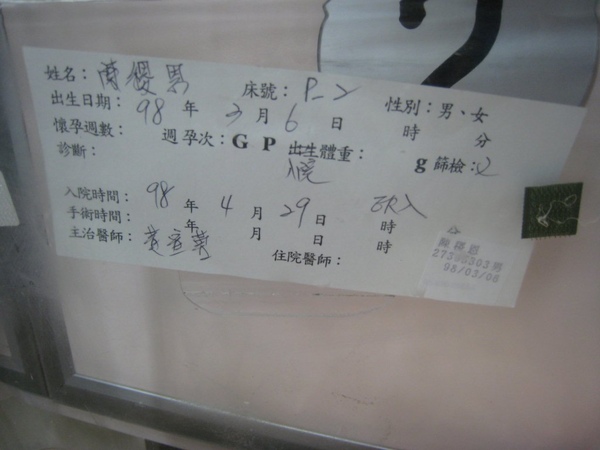 姓名： 男 床號：P-2 性別：男、女
出生日期：98年3月6日 時 分
懷孕週數： 週 孕次：G P 出生體重： g 篩檢：
入院
診斷：
入院時間：98年4月29日 時
手術時間： 年 月 日 時
主治醫師： 住院醫師：
陳
男
98/03/06
2